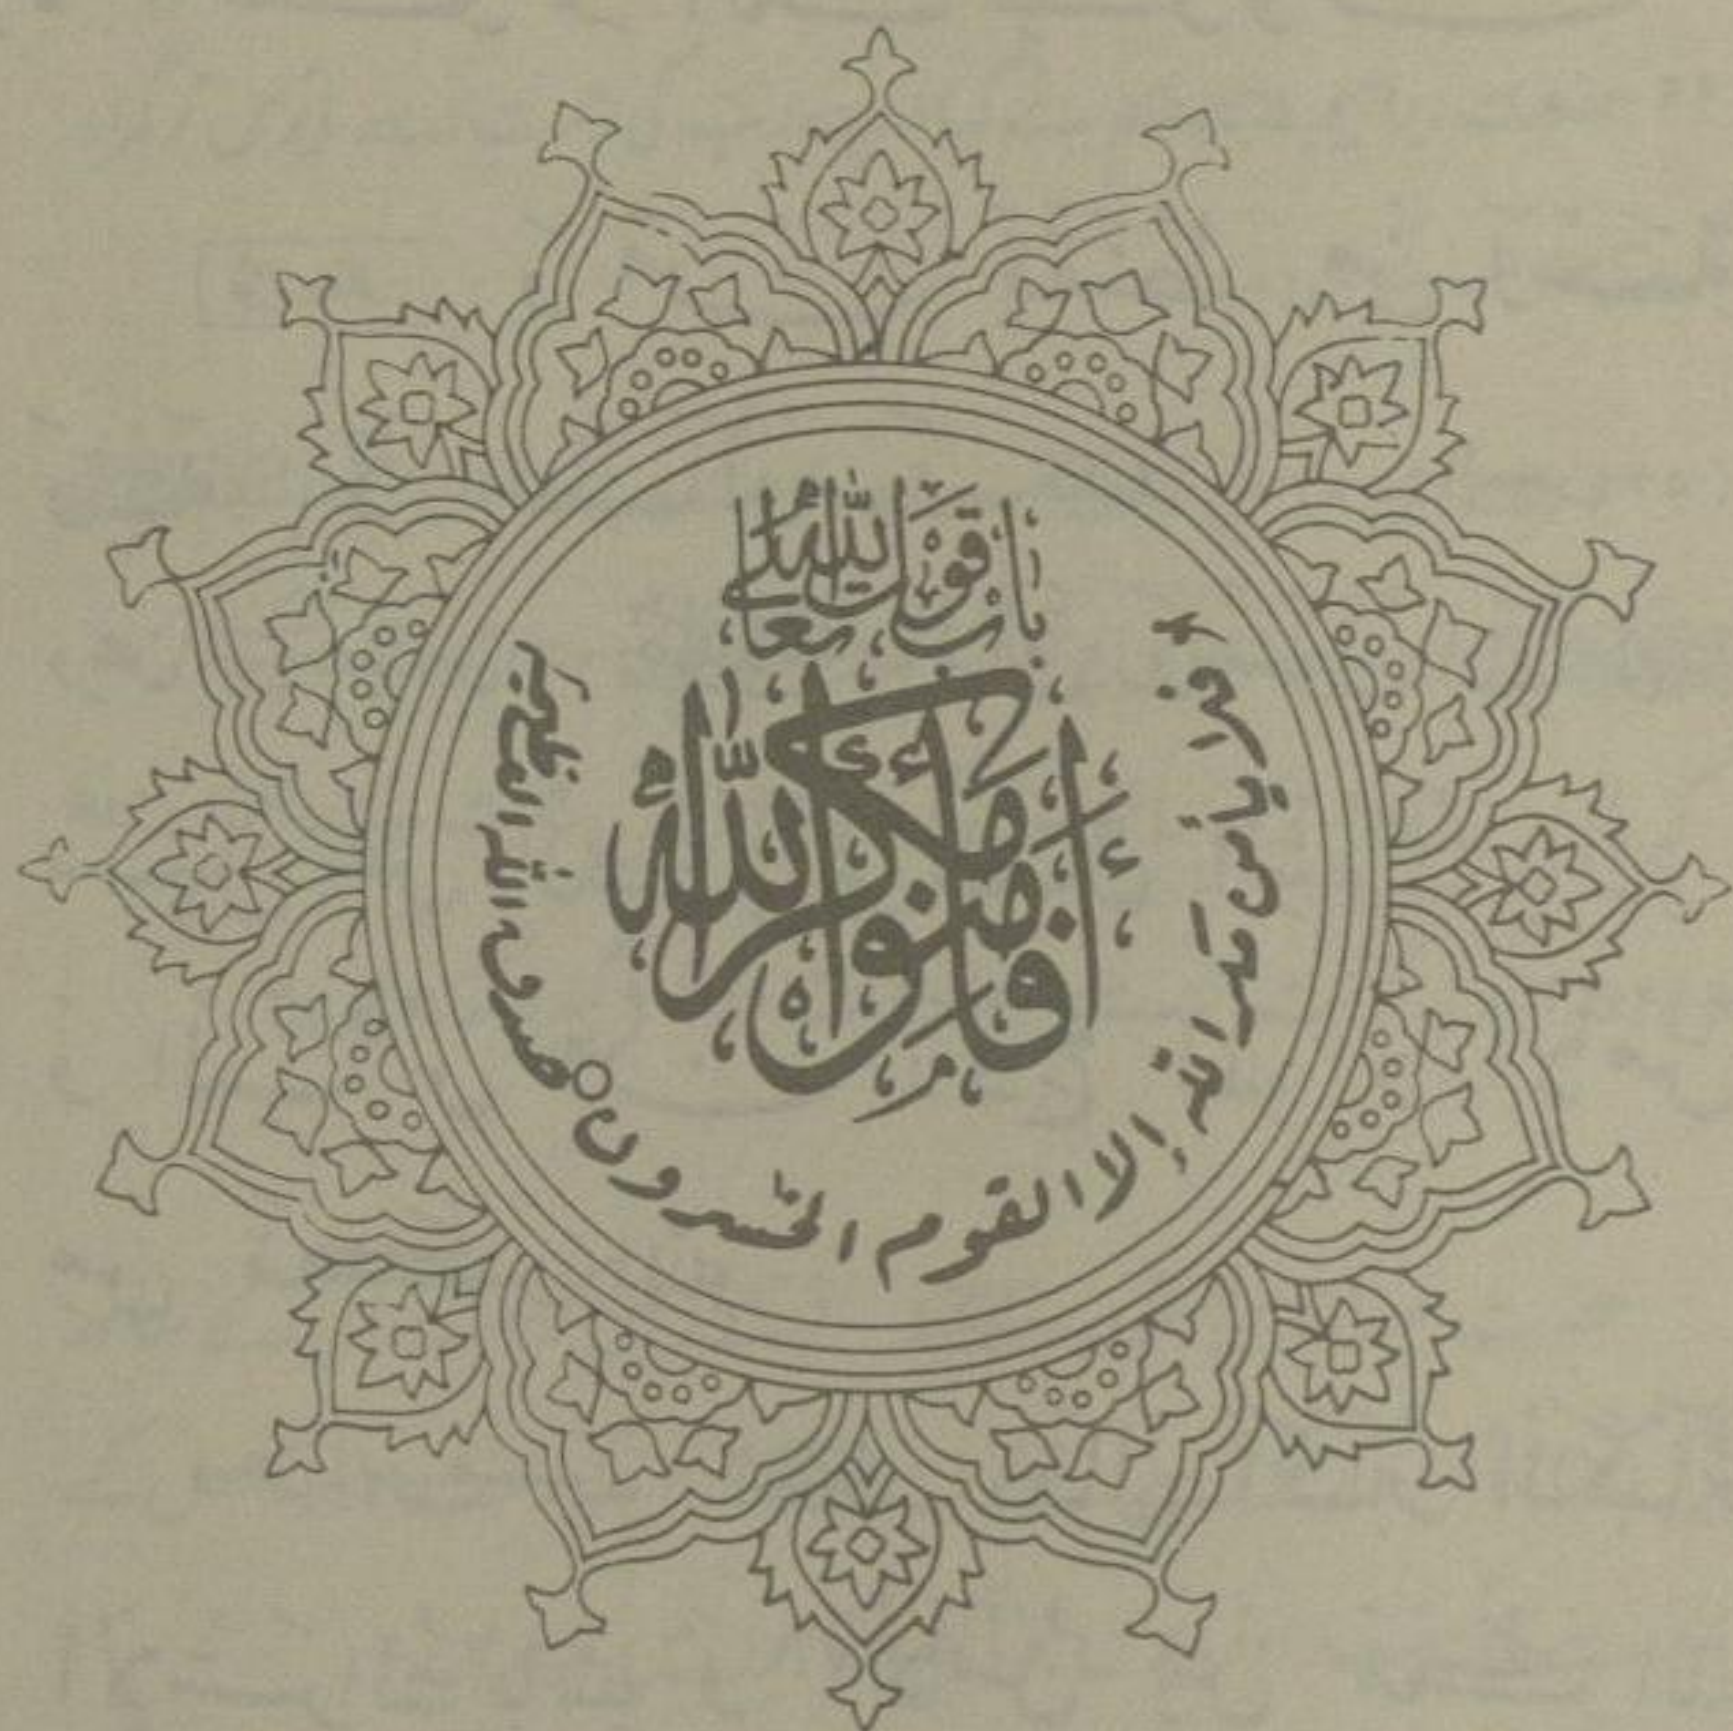 باب قول الله تعالى
أفأمنوا مكر الله
فلا يأمن مكر الله إلا القوم الخسرون ○ صدق الله العظيم